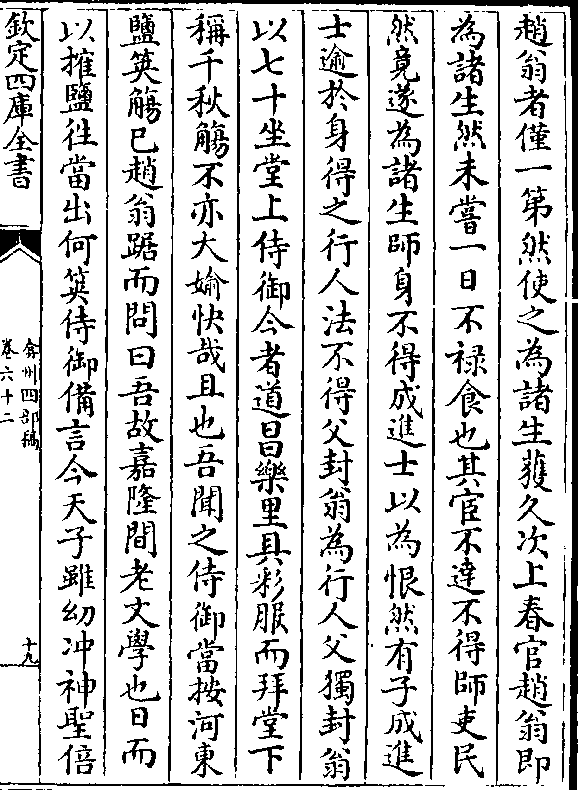 趙翁者僅一第然使之為諸生獲久次上春官趙翁即
為諸生然未嘗一日不祿食也其宦不達不得師吏民
然竟遂為諸生師身不得成進士以為恨然有子成進
士逾於身得之行人法不得父封翁為行人父獨封翁
以七十坐堂上侍御今者道昌樂里具彩服而拜堂下
稱千秋觴不亦大婾快哉且也吾聞之侍御當按河東
鹽筴觴已趙翁踞而問曰吾故嘉隆間老文學也日而
以搉鹽徃當出何筴侍御備言今天子雖幼冲神聖倍
欽定四庫全書
弇州四部稿
卷六十二
十九